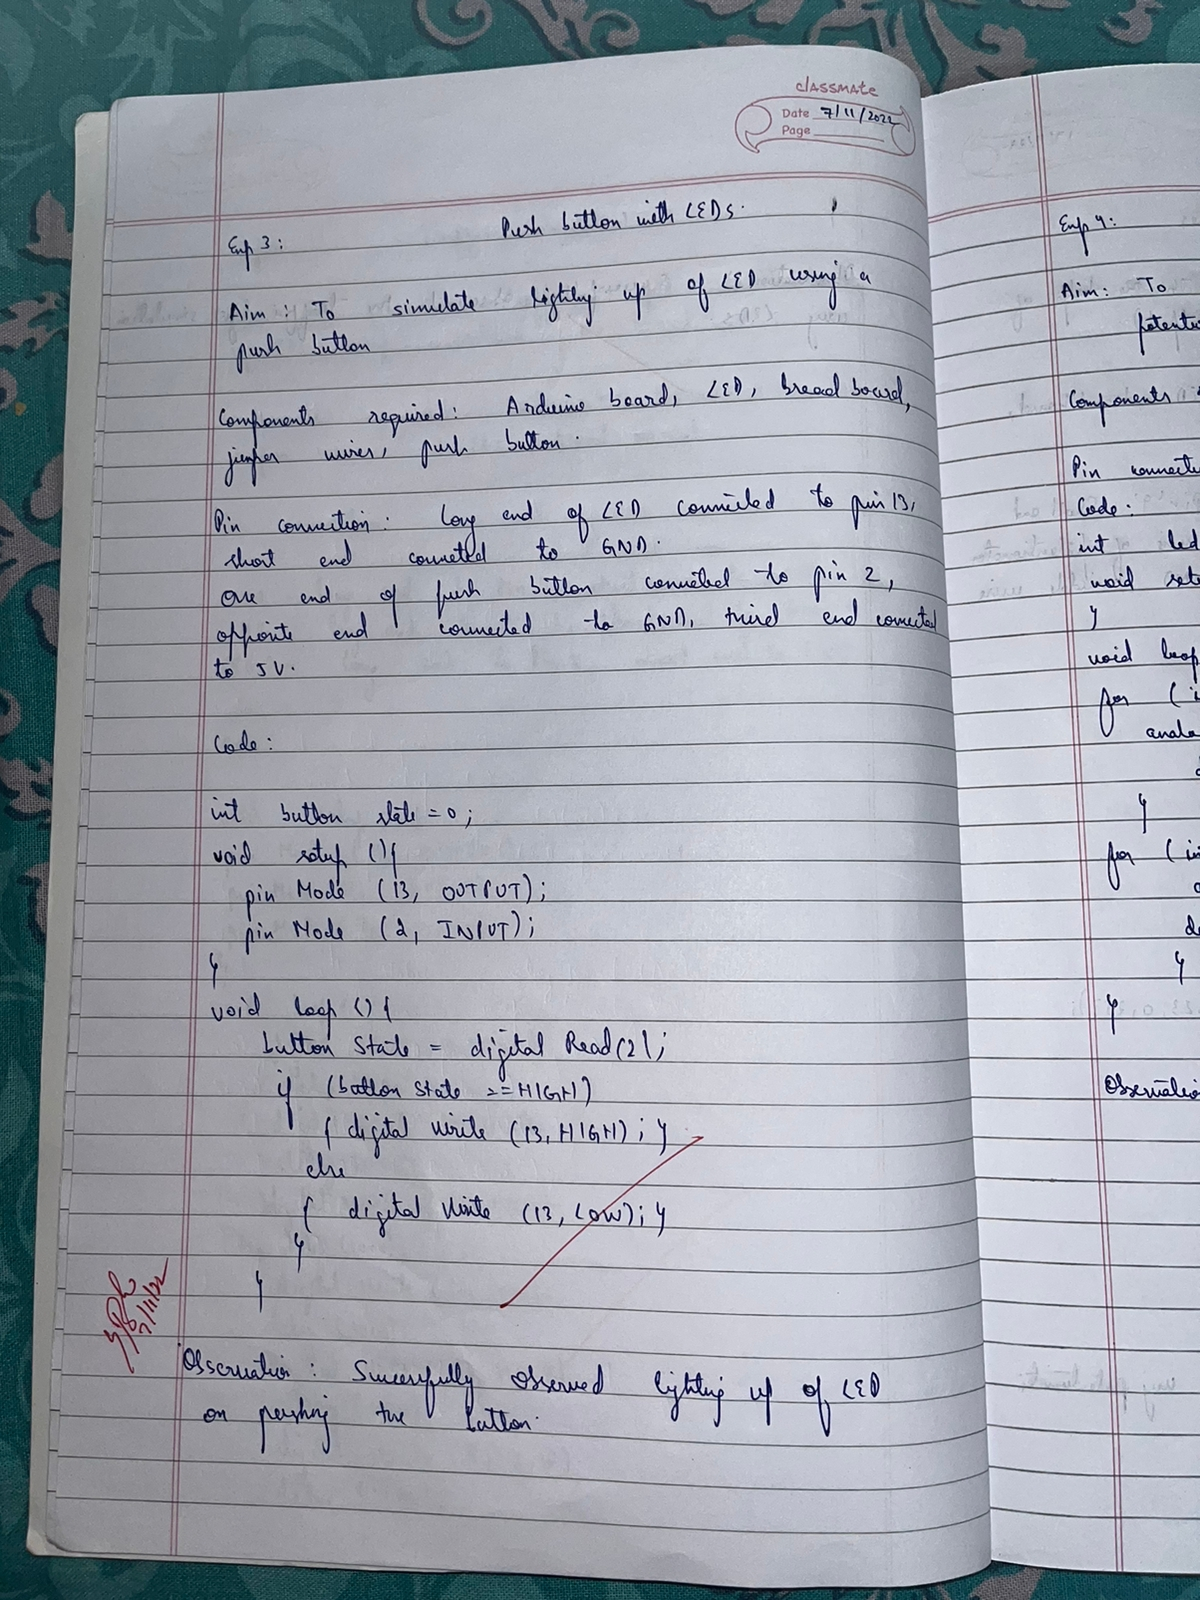 classmate
Date 7/11/2022
Page
Push button with LEDs.
Exp 3:
Aim: To simulate lighting up of LED using a
push button
Components required: Arduino board, LED, bread board,
jumper wires, push button.
Pin connection: Long end of LED connected to pin 13,
short end connected to GND.
one end of push button connected to pin 2,
opposite end connected to GND, third end connected
to 5V.
Code:
int button state = 0;
void setup () {
pin Mode (13, OUTPUT);
pin Mode (2, INPUT);
}
void loop () {
button State = digital Read(2);
if (button State == HIGH)
{ digital write (13, HIGH); }
else
{ digital Write (13, LOW); }
}
}
7/11/22
Observation: Successfully observed lighting up of LED
on pushing the button.
Exp 4:
Aim: To
Components
Pin
Code:
int led
void
}
void loop
for (i
}
for (in
}
}